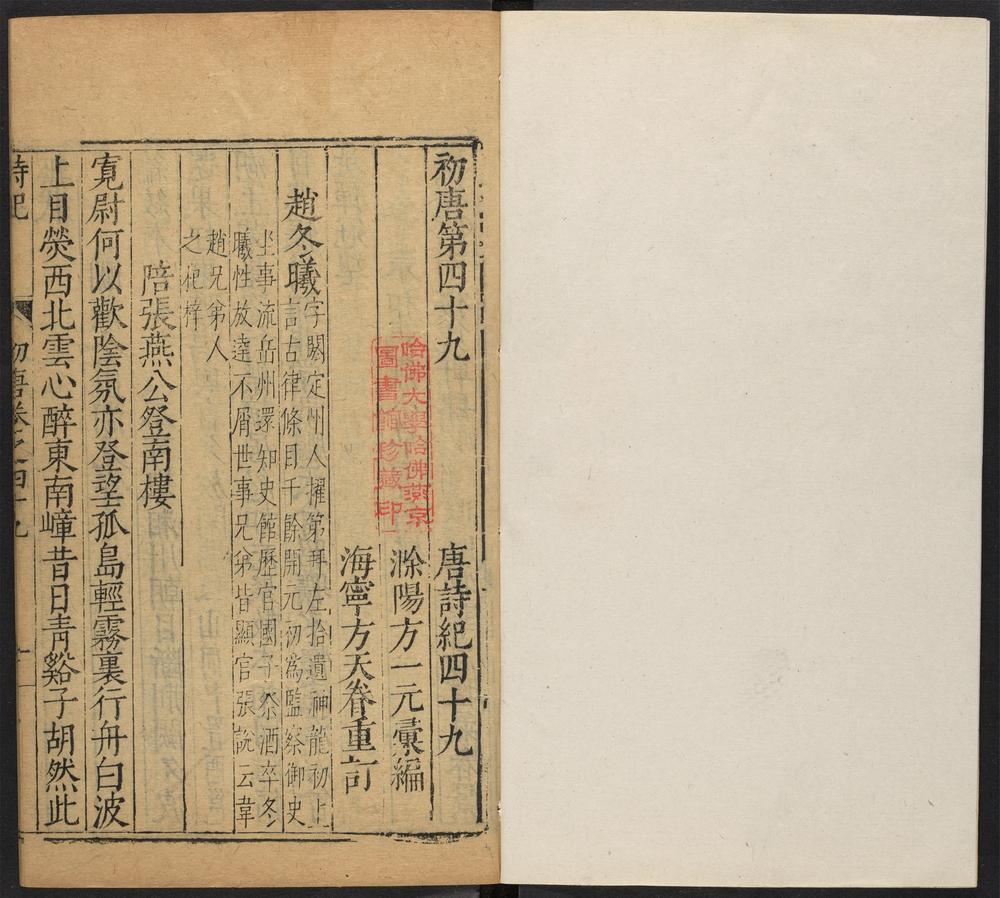 初唐第四十九 唐詩紀四十九
滁陽方一元彙編
海寧方天眷重訂
趙冬曦
字闕定州人擢第拜左拾遺神龍初上
言古律條目千餘開元初為監察御史
坐事流岳州還知史館歷官國子祭酒卒冬
曦性放達不屑世事兄弟皆顯官張說云韋
趙兄弟人
之杞梓
陪張燕公登南樓
寬尉何以歡陰氛亦登望孤島輕霧裏行舟白波
上目熒西北雲心醉東南嶂昔日青谿子胡然此
詩紀 初唐卷之四十九
哈佛大學哈佛燕京
圖書館珍藏印